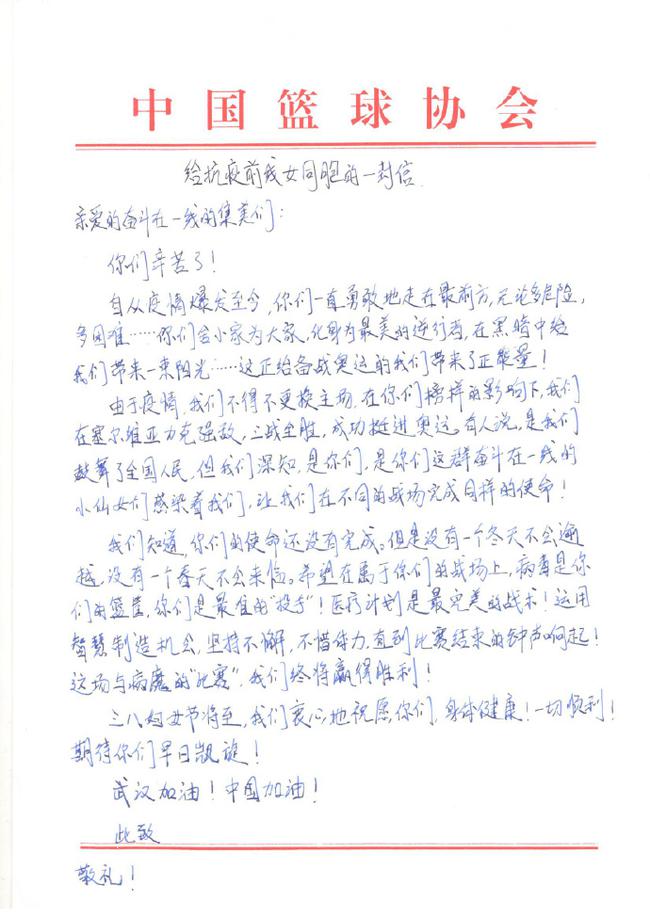 中国篮球协会
给抗疫前线女同胞的一封信
亲爱的奋斗在一线的集美们：
你们辛苦了！
自从疫情爆发至今，你们一直勇敢地走在最前方，无论多危险，
多困难……你们舍小家为大家，化身为最美的逆行者，在黑暗中给
我们带来一束阳光……这正给备战奥运的我们带来了正能量！
由于疫情，我们不得不更换主场，在你们榜样的影响下，我们
在塞尔维亚力克强敌，三战全胜，成功挺进奥运。有人说，是我们
鼓舞了全国人民，但我们深知，是你们，是你们这群奋斗在一线的
小仙女们感染着我们，让我们在不同的战场完成同样的使命！
我们知道，你们的使命还没有完成。但是没有一个冬天不会逾
越，没有一个春天不会来临。希望在属于你们的战场上，病毒是你
们的篮筐，你们是最准的“投手”！医疗计划是最完美的战术！运用
智慧制造机会，坚持不懈，不惜体力，直到比赛结束的钟声响起！
这场与病魔的“比赛”，我们终将赢得胜利！
三八妇女节将至，我们衷心地祝愿你们，身体健康！一切顺利！
期待你们早日凯旋！
武汉加油！中国加油！
此致
敬礼！